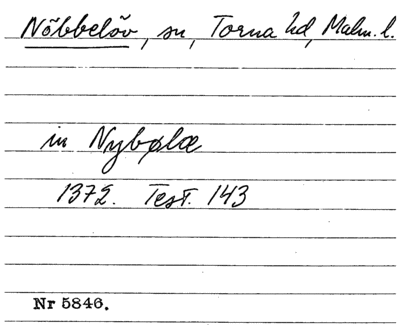 Nöbbelöv, sn, Torna hd, Malm. l.
in Nybølæ
1372. Test. 143
Nr 5846.